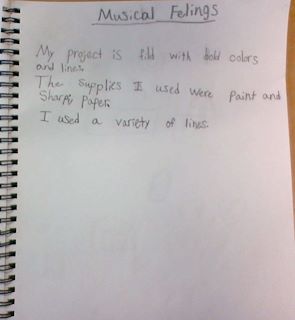 Musical Felings
My project is fild with bold colors
and lines.
The supplies I used were paint and
Sharpy Paper.
I used a variety of lines.